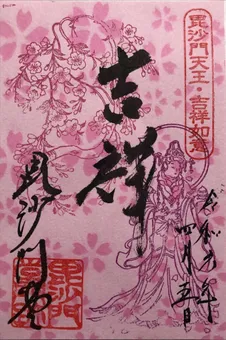 毘沙門天王・吉祥如意
令和六年
四月五日
吉祥
毘沙門堂
毘沙門